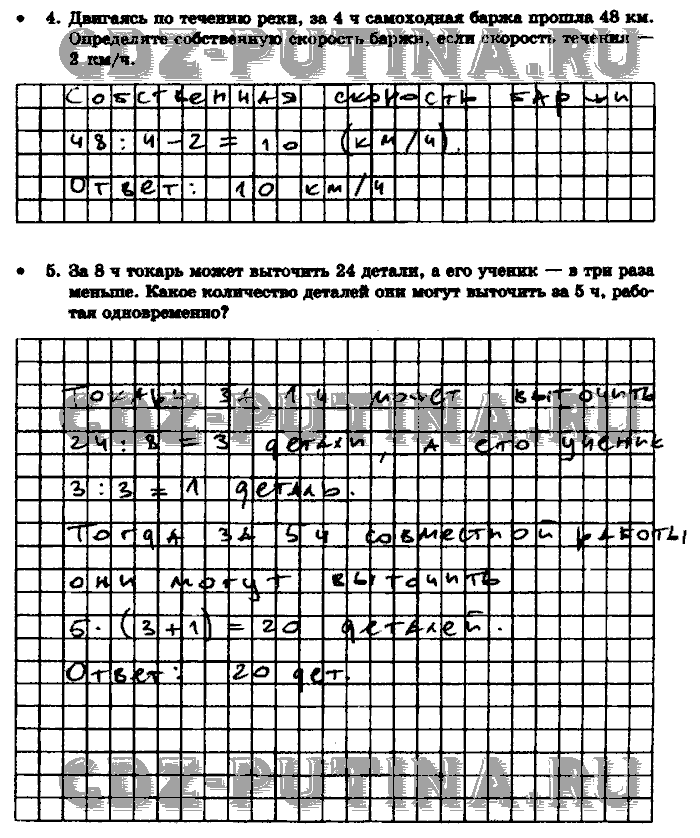 • 4. Двигаясь по течению реки, за 4 ч самоходная баржа прошла 48 км.
Определите собственную скорость баржи, если скорость течения —
2 км/ч.
GDZ-PUTINA.RU
Собственная скорость баржи
48 : 4 - 2 = 10 (км/ч).
Ответ: 10 км/ч
• 5. За 8 ч токарь может выточить 24 детали, а его ученик — в три раза
меньше. Какое количество деталей они могут выточить за 5 ч, рабо-
тая одновременно?
Токарь за 1 ч может выточить
GDZ-PUTINA.RU
24 : 8 = 3 детали, а его ученик
3 : 3 = 1 деталь.
Тогда за 5 ч совместной работы
они могут выточить
5 · (3 + 1) = 20 деталей.
Ответ: 20 дет.
GDZ-PUTINA.RU